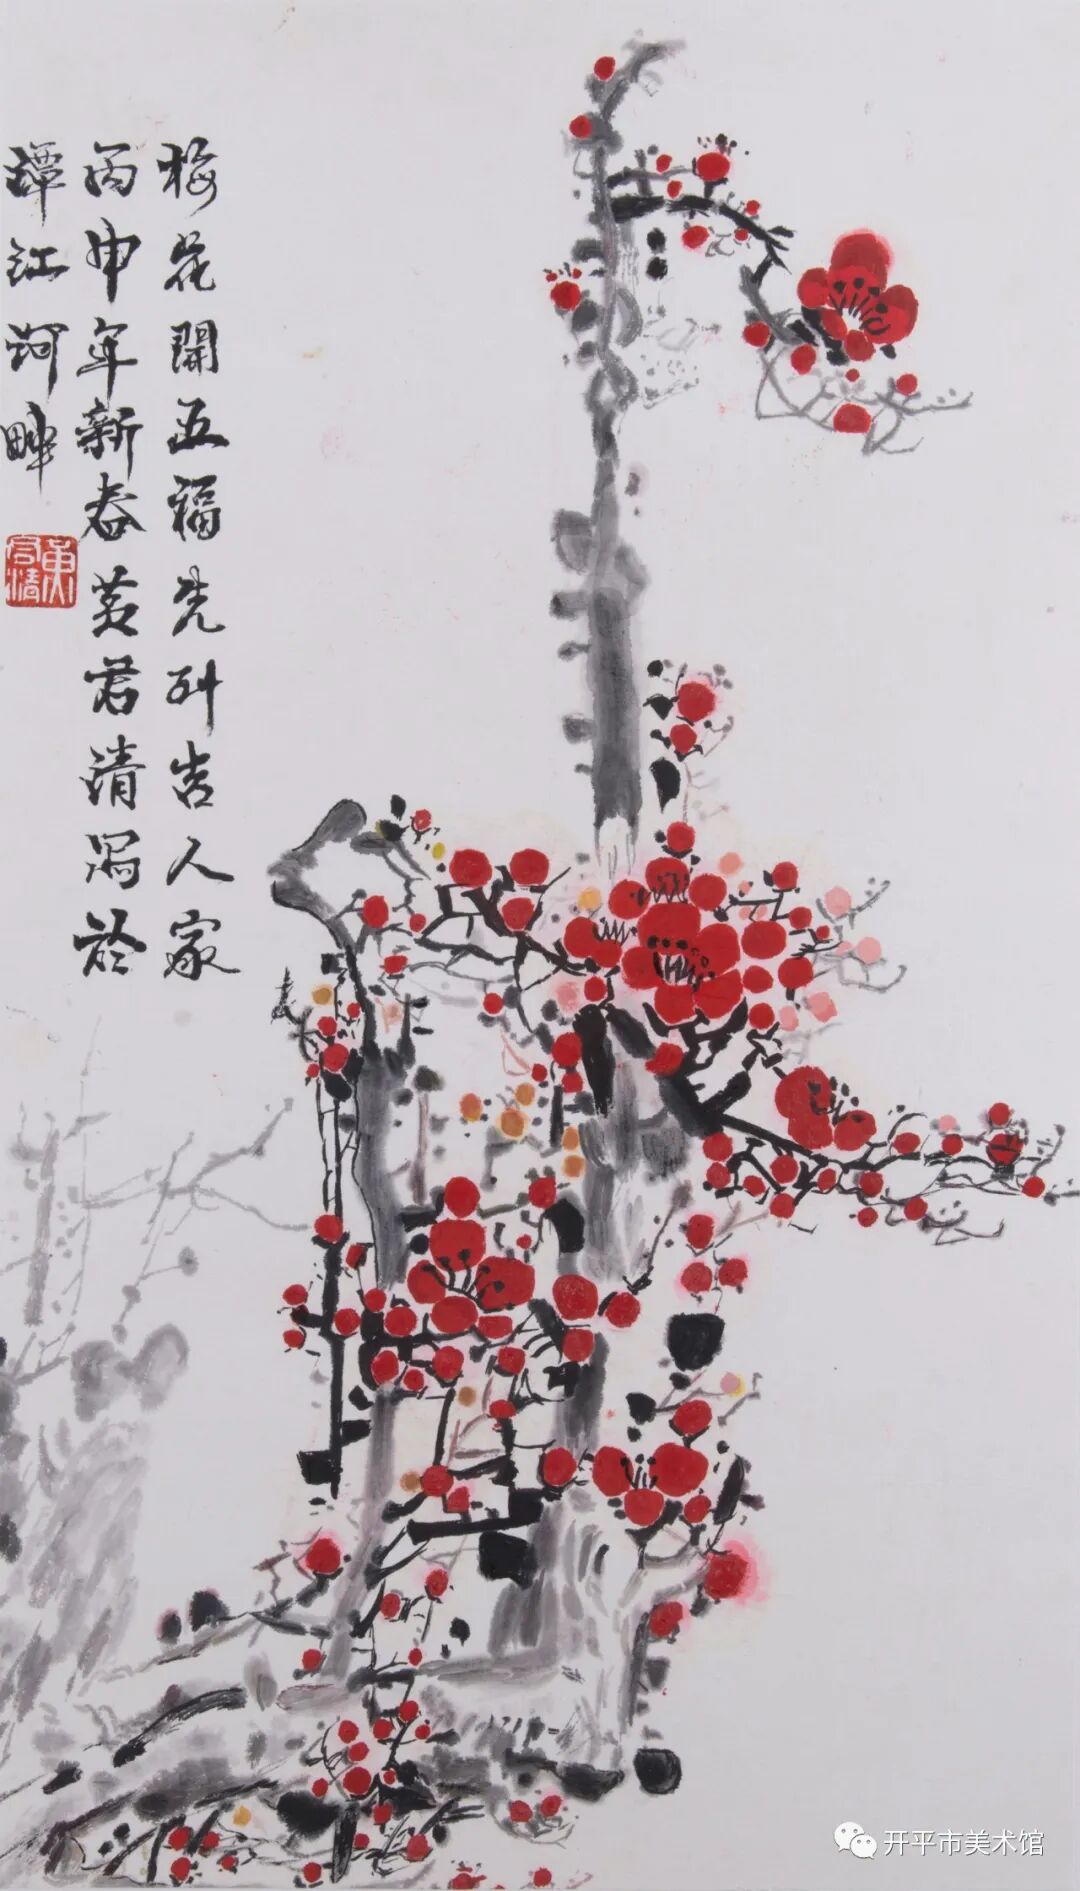 梅花開五福先到吉人家
丙申年新春黄君清写於
潭江河畔
黄君清
开平市美术馆